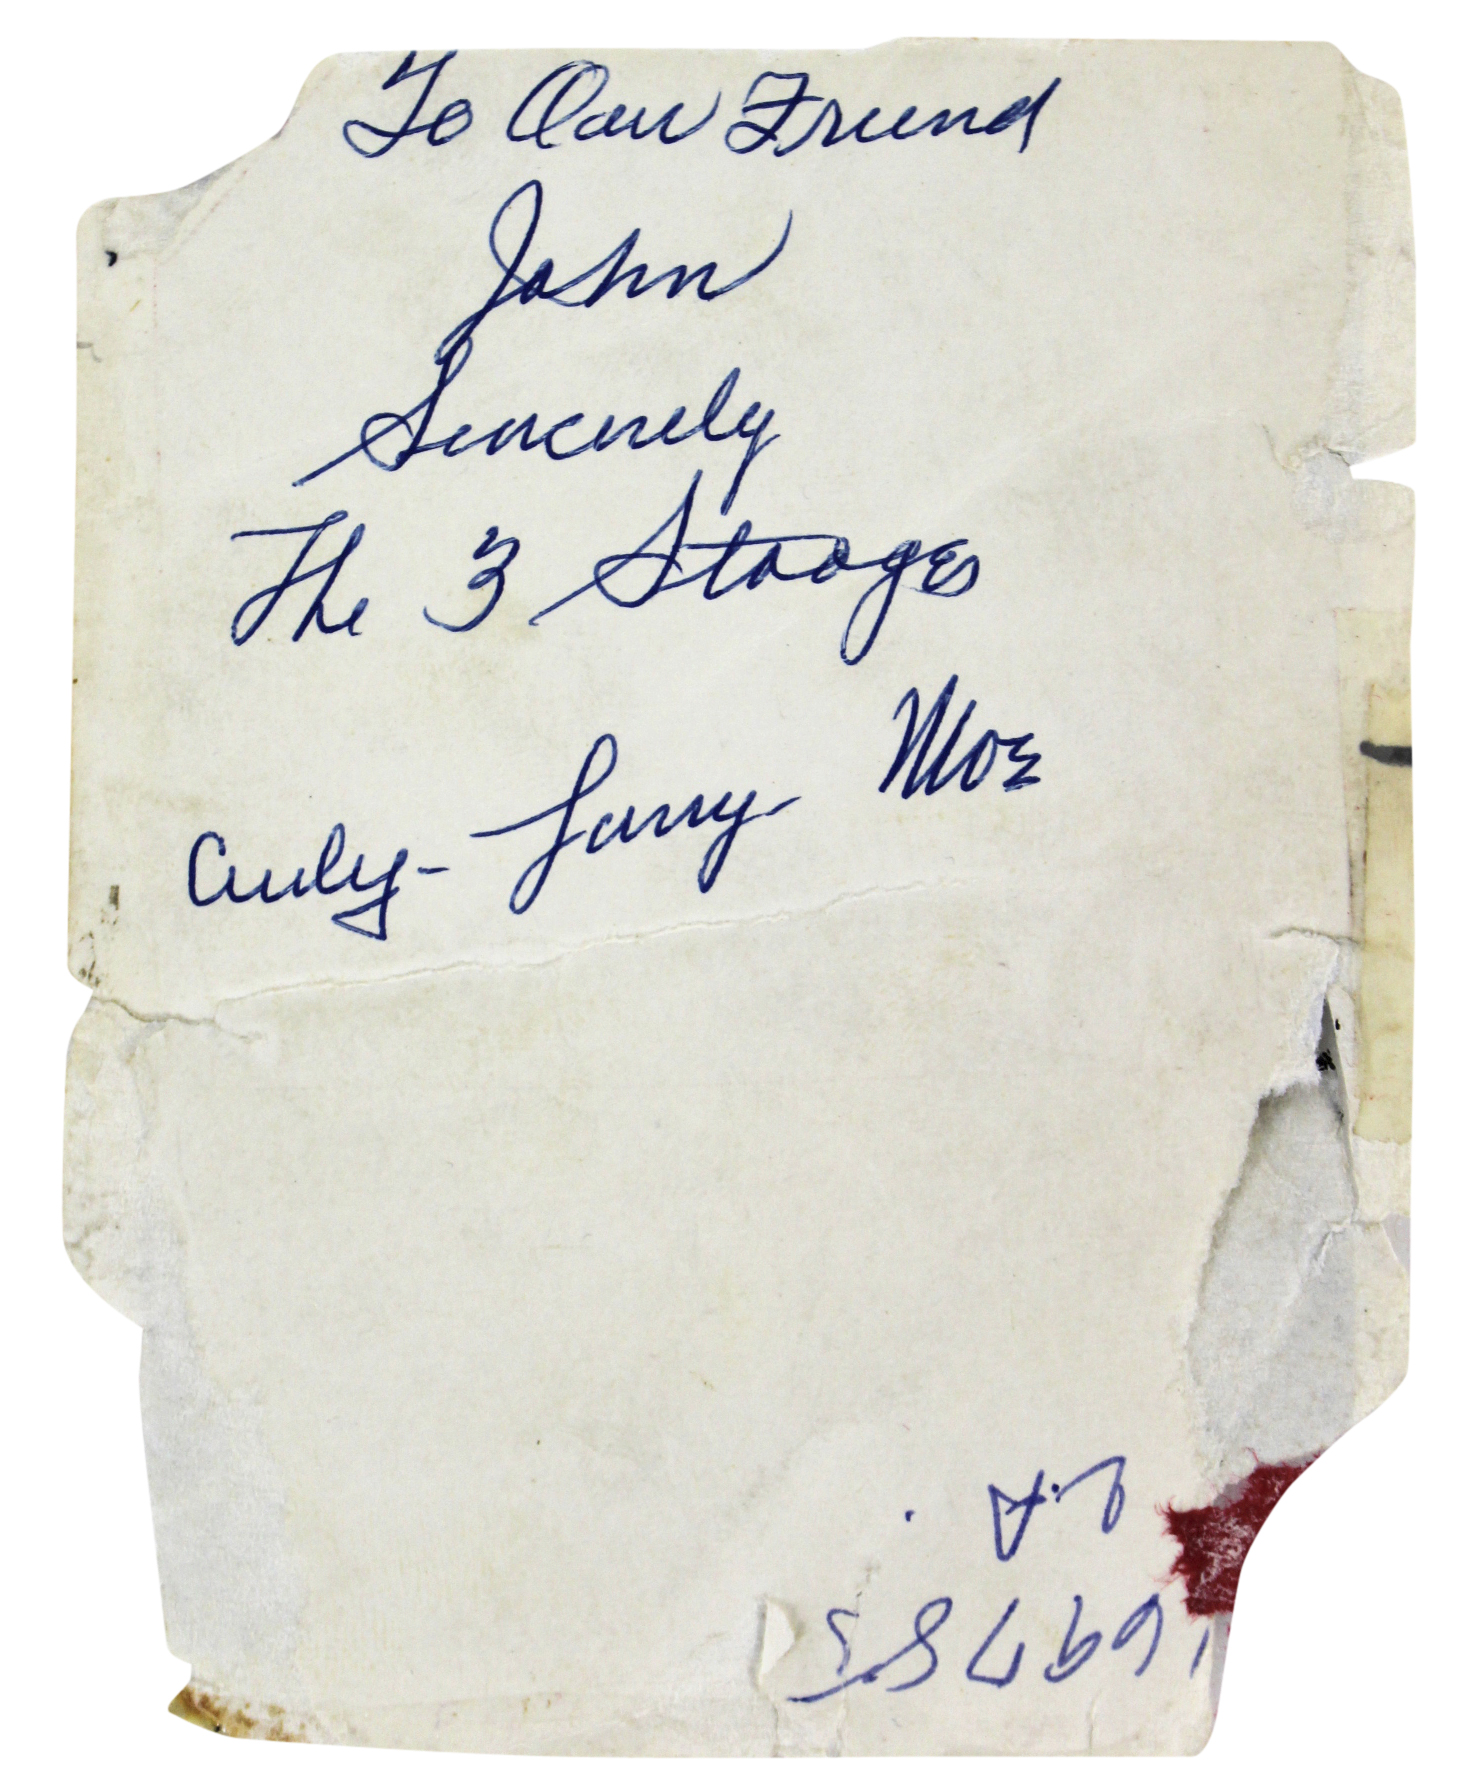 To Our Friend
John
Sincerely
The 3 Stooges
Curly- Larry- Moe